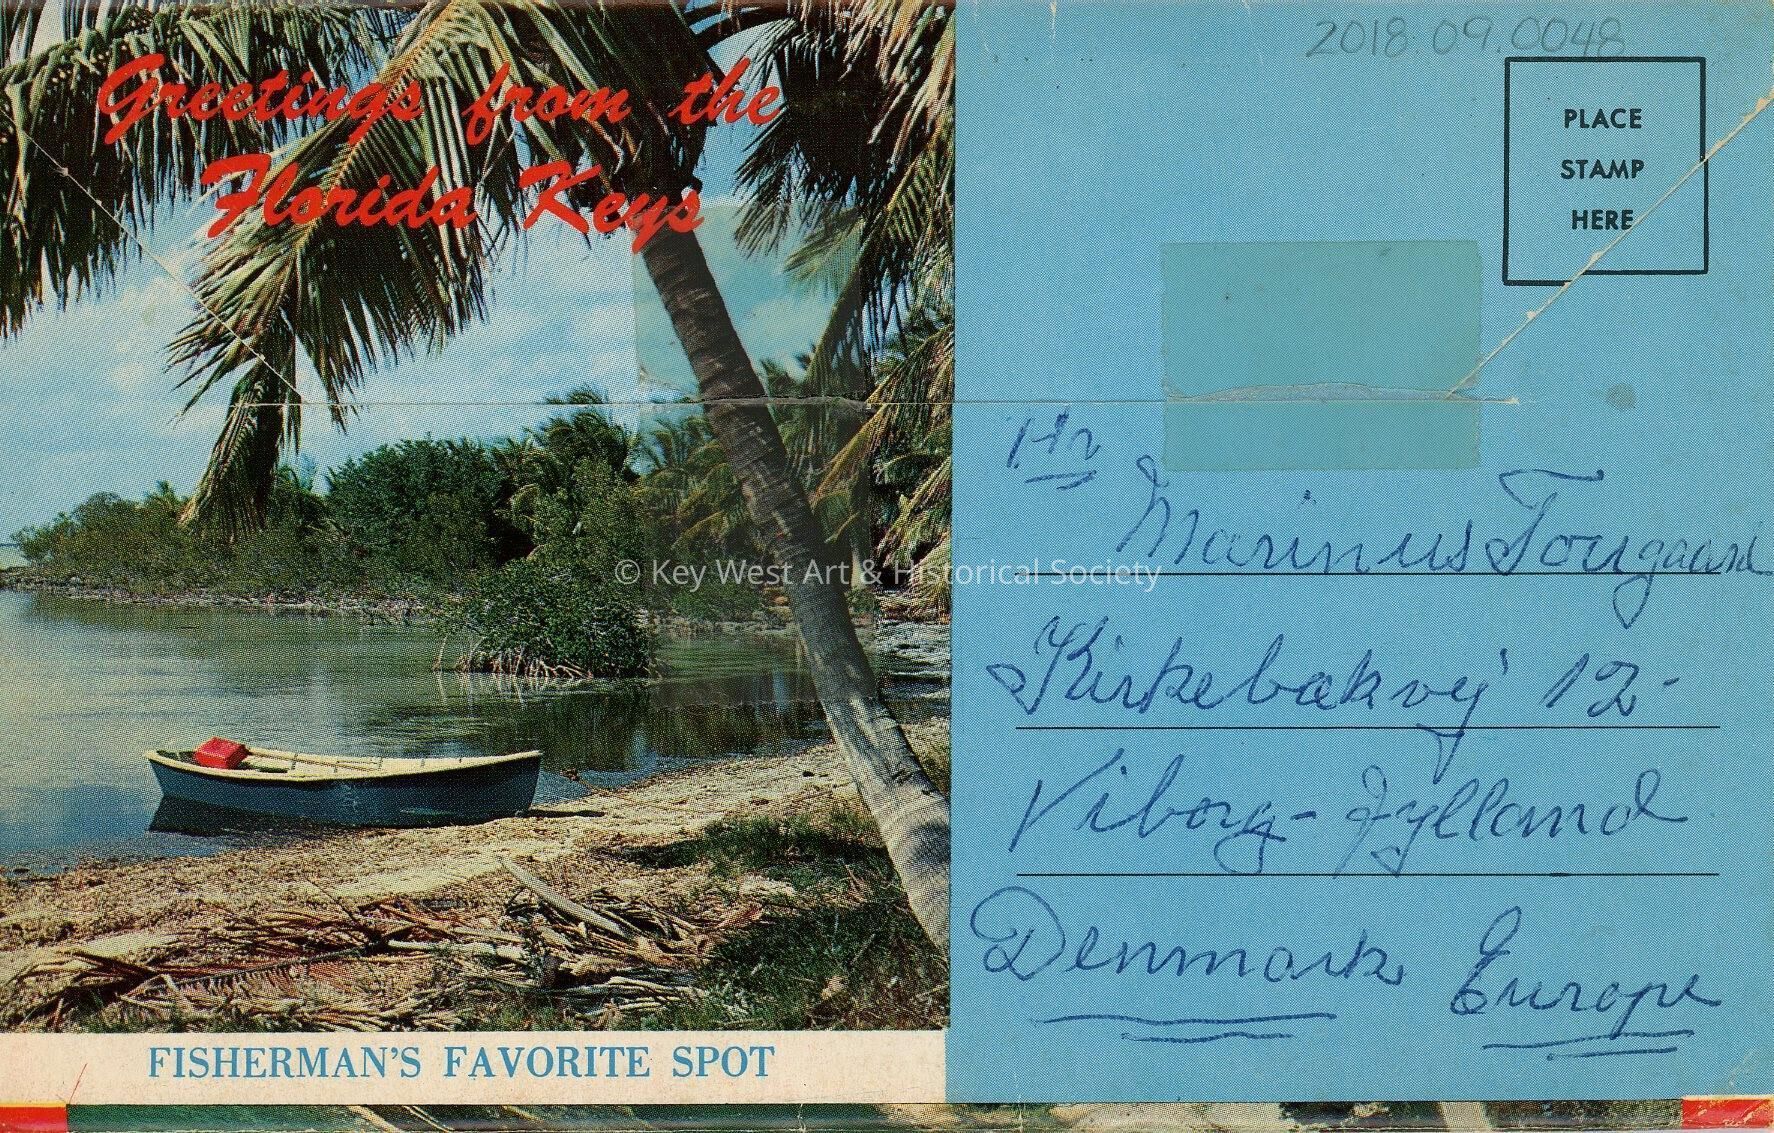 Greetings from the
Florida Keys
FISHERMAN'S FAVORITE SPOT
2018.09.0048
PLACE
STAMP
HERE
Hr
Marinus Tougaard
Kirkebækvej 12-
Viborg - Jylland
Denmark Europe
© Key West Art & Historical Society